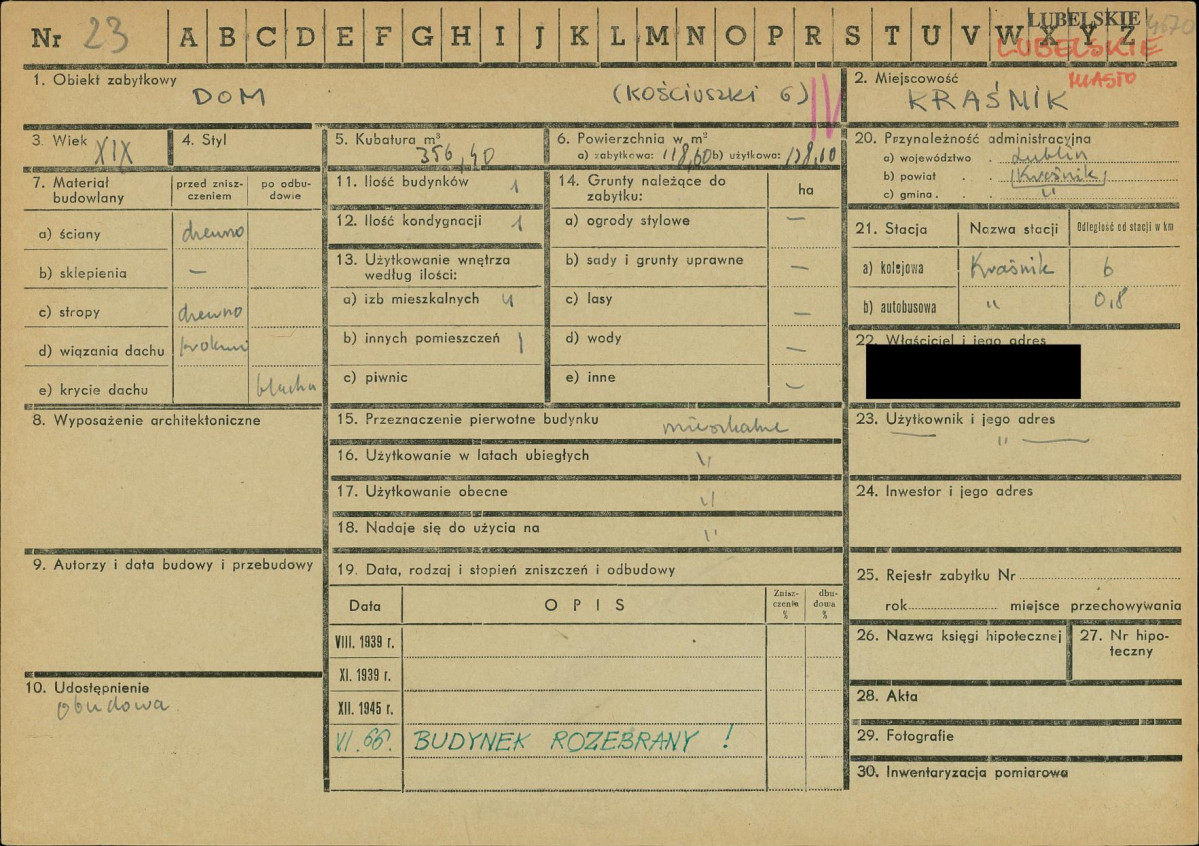 Nr 23 A B C D E F G H I J K L M N O P R S T U V W X Y Z
LUBELSKIE 4670
LUBELSKIE
MIASTO
1. Obiekt zabytkowy
DOM (KOŚCIUSZKI 6) IV
2. Miejscowość
KRAŚNIK
3. Wiek XIX
4. Styl
5. Kubatura m³
356,40
6. Powierzchnia w m²
a) zabytkowa: 118,80 b) użytkowa:
7. Materiał budowlany
przed zniszczeniem
po odbudowie
a) ściany drewno
b) sklepienia —
c) stropy drewno
d) wiązania dachu
e) krycie dachu blacha
8. Wyposażenie architektoniczne
9. Autorzy i data budowy i przebudowy
10. Udostępnienie
obudowa
11. Ilość budynków 1
12. Ilość kondygnacji 1
13. Użytkowanie wnętrza
według ilości:
a) izb mieszkalnych 4
b) innych pomieszczeń 1
c) piwnic
14. Grunty należące do
zabytku:
ha
a) ogrody stylowe —
b) sady i grunty uprawne —
c) lasy —
d) wody —
e) inne —
15. Przeznaczenie pierwotne budynku mieszkalne
16. Użytkowanie w latach ubiegłych "
17. Użytkowanie obecne "
18. Nadaje się do użycia na "
19. Data, rodzaj i stopień zniszczeń i odbudowy
Data OPIS Zniszczenia % dbudowa %
VIII. 1939 r.
XI. 1939 r.
XII. 1945 r.
VI.66r. BUDYNEK ROZEBRANY !
20. Przynależność administracyjna
a) województwo . Lublin
b) powiat . . Kraśnik
c) gmina . . "
21. Stacja Nazwa stacji Odległość od stacji w km
a) kolejowa Kraśnik 6
b) autobusowa " 0,8
22. Właściciel i jego adres
23. Użytkownik i jego adres
— " —
24. Inwestor i jego adres
25. Rejestr zabytku Nr
rok miejsce przechowywania
26. Nazwa księgi hipotecznej
27. Nr hipoteczny
28. Akta
29. Fotografie
30. Inwentaryzacja pomiarowa